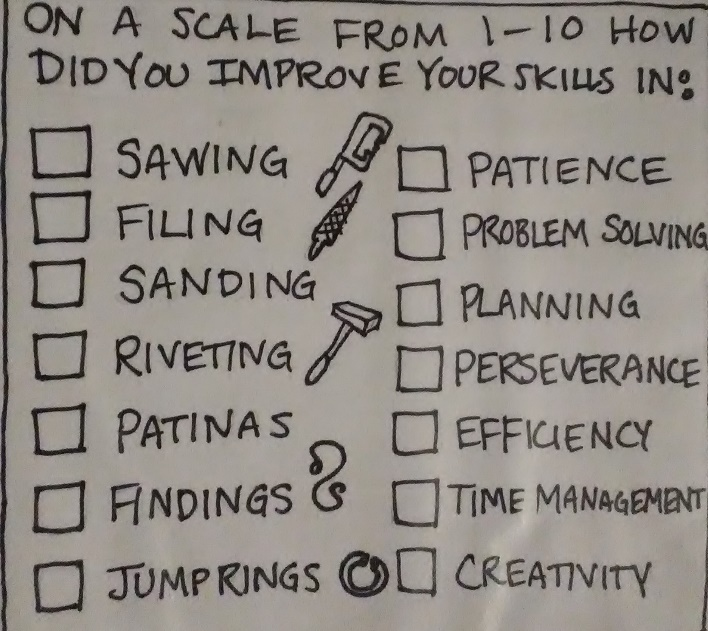 ON A SCALE FROM 1-10 HOW
DID YOU IMPROVE YOUR SKILLS IN:
SAWING
FILING
SANDING
RIVETING
PATINAS
FINDINGS
JUMPRINGS
PATIENCE
PROBLEM SOLVING
PLANNING
PERSEVERANCE
EFFICIENCY
TIME MANAGEMENT
CREATIVITY